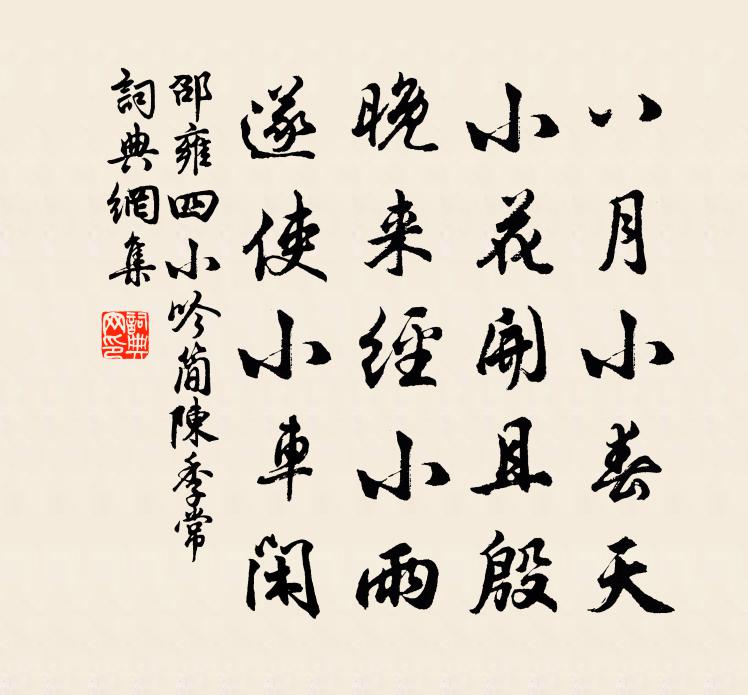 八月小春天
小花開且殷
晚来經小雨
遂使小車閑
邵雍四小吟簡陳季常
詞典網集
詞典網印